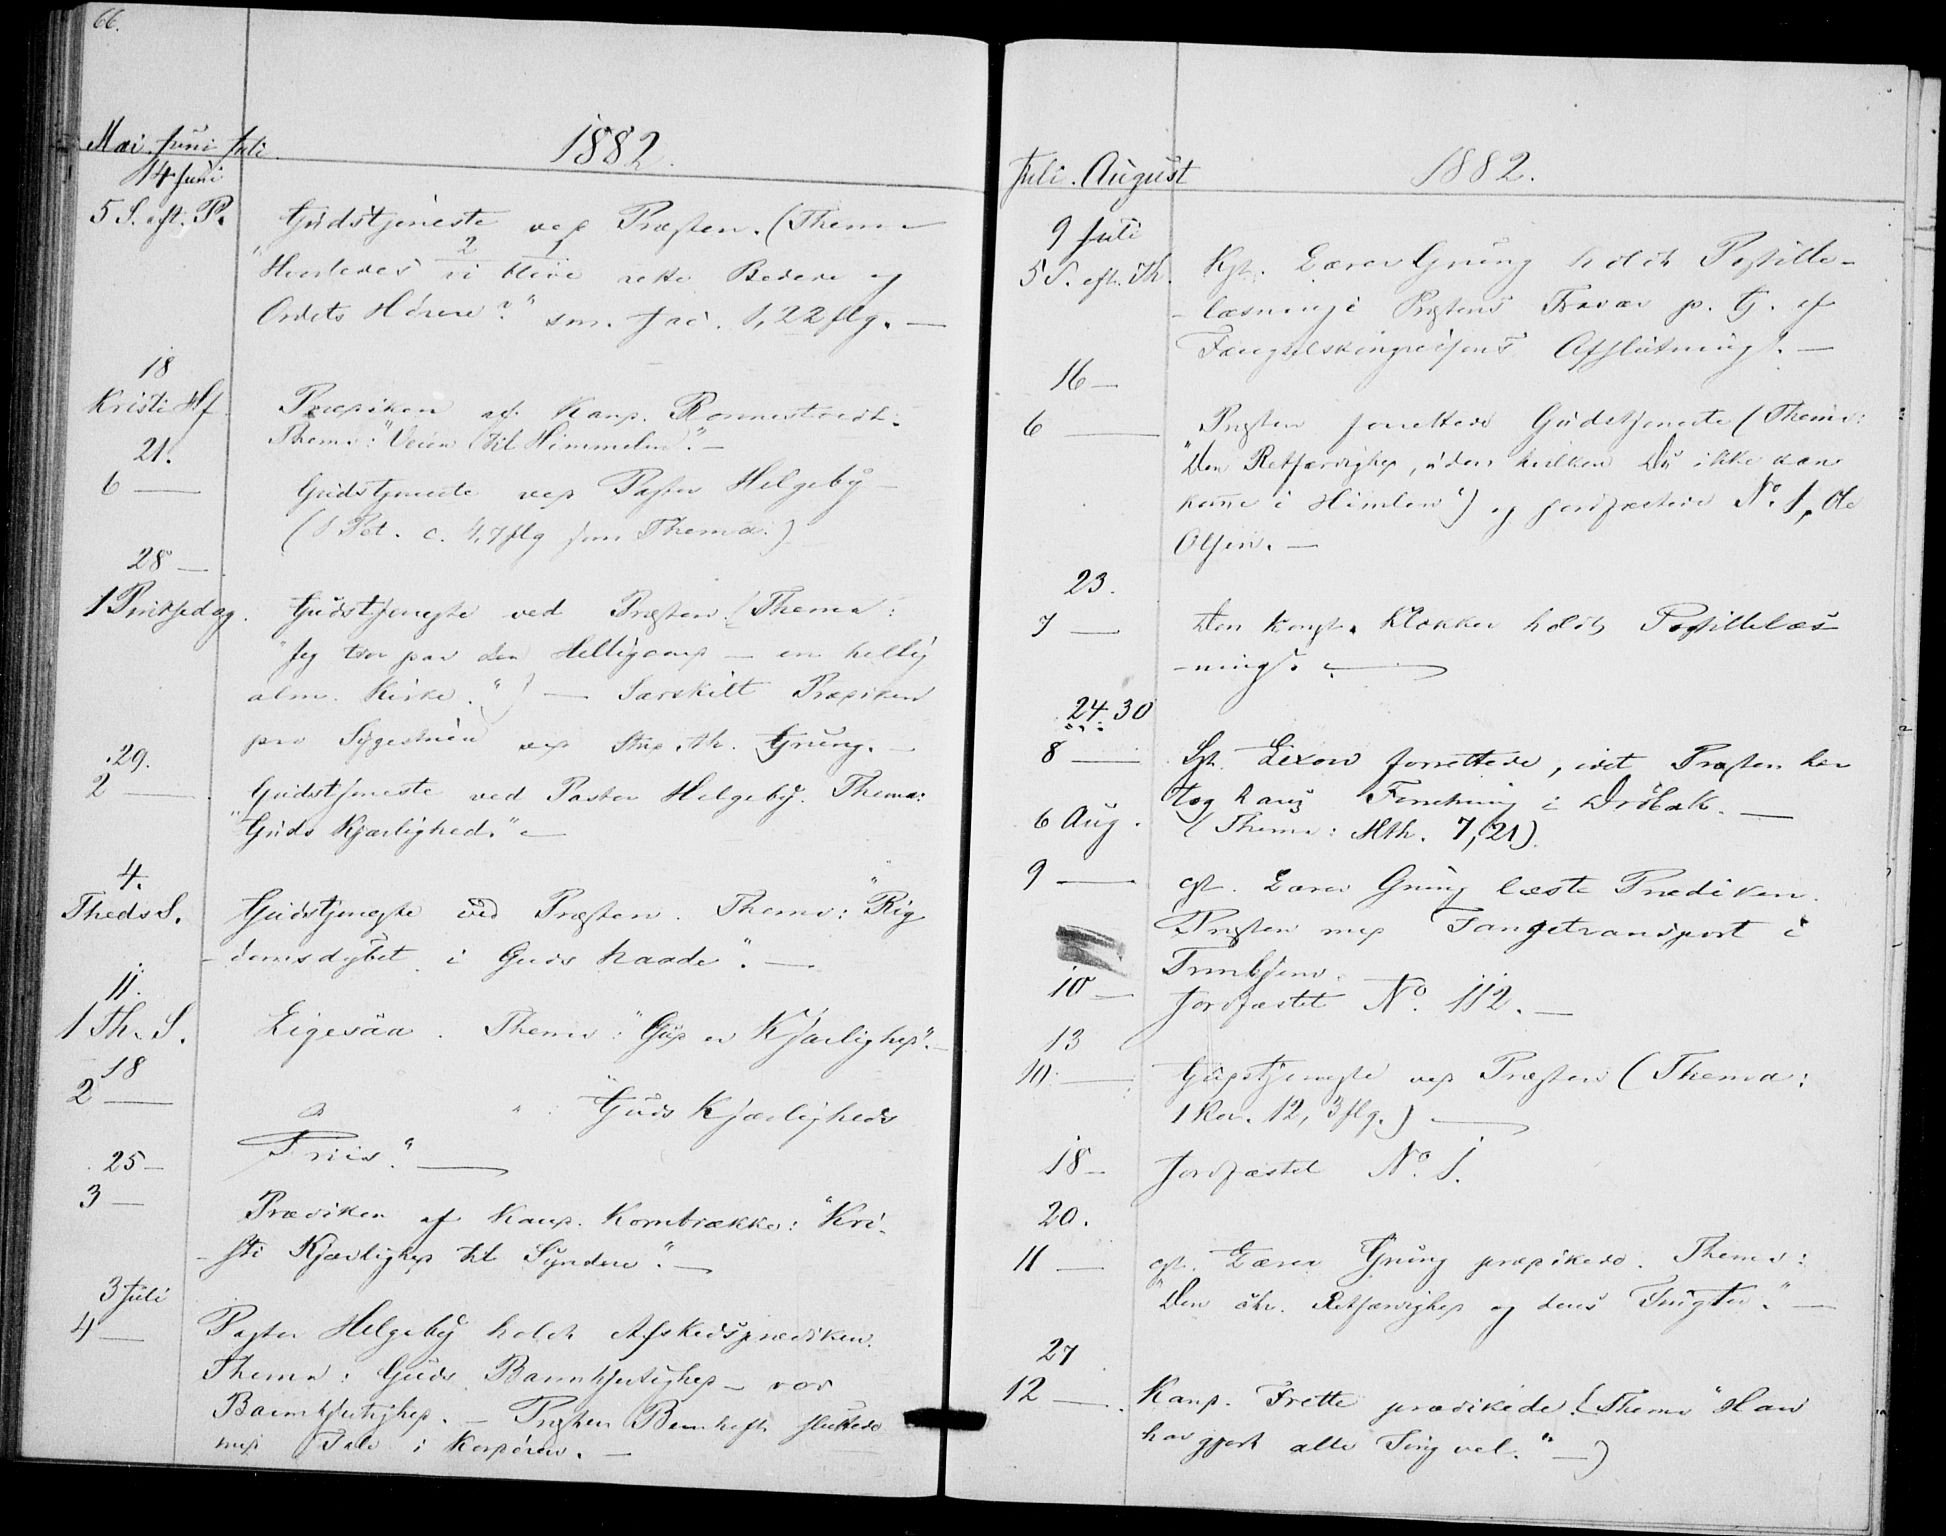 66.
Mai. Juni Juli.
1882.
14 Juni
5 S. eft. P.
Gudstjeneste ved Præsten. (Thema
"Hvorledes vi blive rette Bedere og
Ordets Hørere?" sm. Jac. 1,22 flg. —
18
Kristi Hf.
Prædiken af Kand.
Thema: "Veien til Himmelen". —
21.
6 —
Gudstjeneste ved Pastor Helgeby —
(1 Pet. c. 4,7 flg som Thema.)
28 —
1 Pintsedag.
Gudstjeneste ved Præsten. (Thema:
"Jeg tror paa den Helligaand — en hellig
alm. Kirke.") — Særskilt Prædiken
paa Sygestuen ved Stud. th. Grung. —
29.
2 —
Gudstjeneste ved Pastor Helgeby. Thema:
"Guds Kjærlighed." —
4.
Threds S.
Gudstjeneste ved Præsten. Thema: "Rig
-domsdybet i Guds Naade". —
11.
1 Th. S.
Ligesaa. Thema: "Gud er Kjærlighed". —
18
2 —
" "Guds Kjærligheds
Priis." —
25 —
3 —
Prædiken af Kand. Kornbrække: "Kri-
-sti Kjærlighed til Syndere". —
3 Juli
4 —
Pastor Helgeby holdt Afskedsprædiken.
Thema: Guds Barmhjertighed — vor
Barmhjertighed. — Præsten Bernhoft sluttede
med Tale i Kordøren. —
Juli. August
1882.
9 Juli
5 S. eft. Th.
Kst. Lærer Grung holdt Postille-
-læsning i Præstens Fravær p. G. af
Fængselskongressens Afslutning. —
16 —
6 —
Præsten forrettede Gudstjeneste (Thema:
"Den Retfærdighed, uden hvilken Du ikke kan
komme i Himlen") og jordfæstede No. 1, Ole
Olsen. —
23.
7 —
Den konst. Klokker holdt Postillelæs
-ning. —
24. 30
8 —
Lexow forrettede, idet Præsten her
tog hans Forretning i Drøbak. —
6 Aug.
(Thema: Mth. 7,21).
9 —
cst. Lærer Grung læste Prædiken.
Præsten med Fangetransport i
Trondhjem.
10 —
Jordfæstet No. 112. —
13
10 —
Gudstjeneste ved Præsten (Thema:
1 Kor. 12, 3 flg.) —
18 —
Jordfæstet No. 1.
20.
11 —
cst. Lærer Grung prædikede. Thema:
"Den chr. Retfærdighed og dens Frugter." —
27
12 —
Kand. Frette prædikede. (Thema "Han
har gjort alle Ting vel." —)